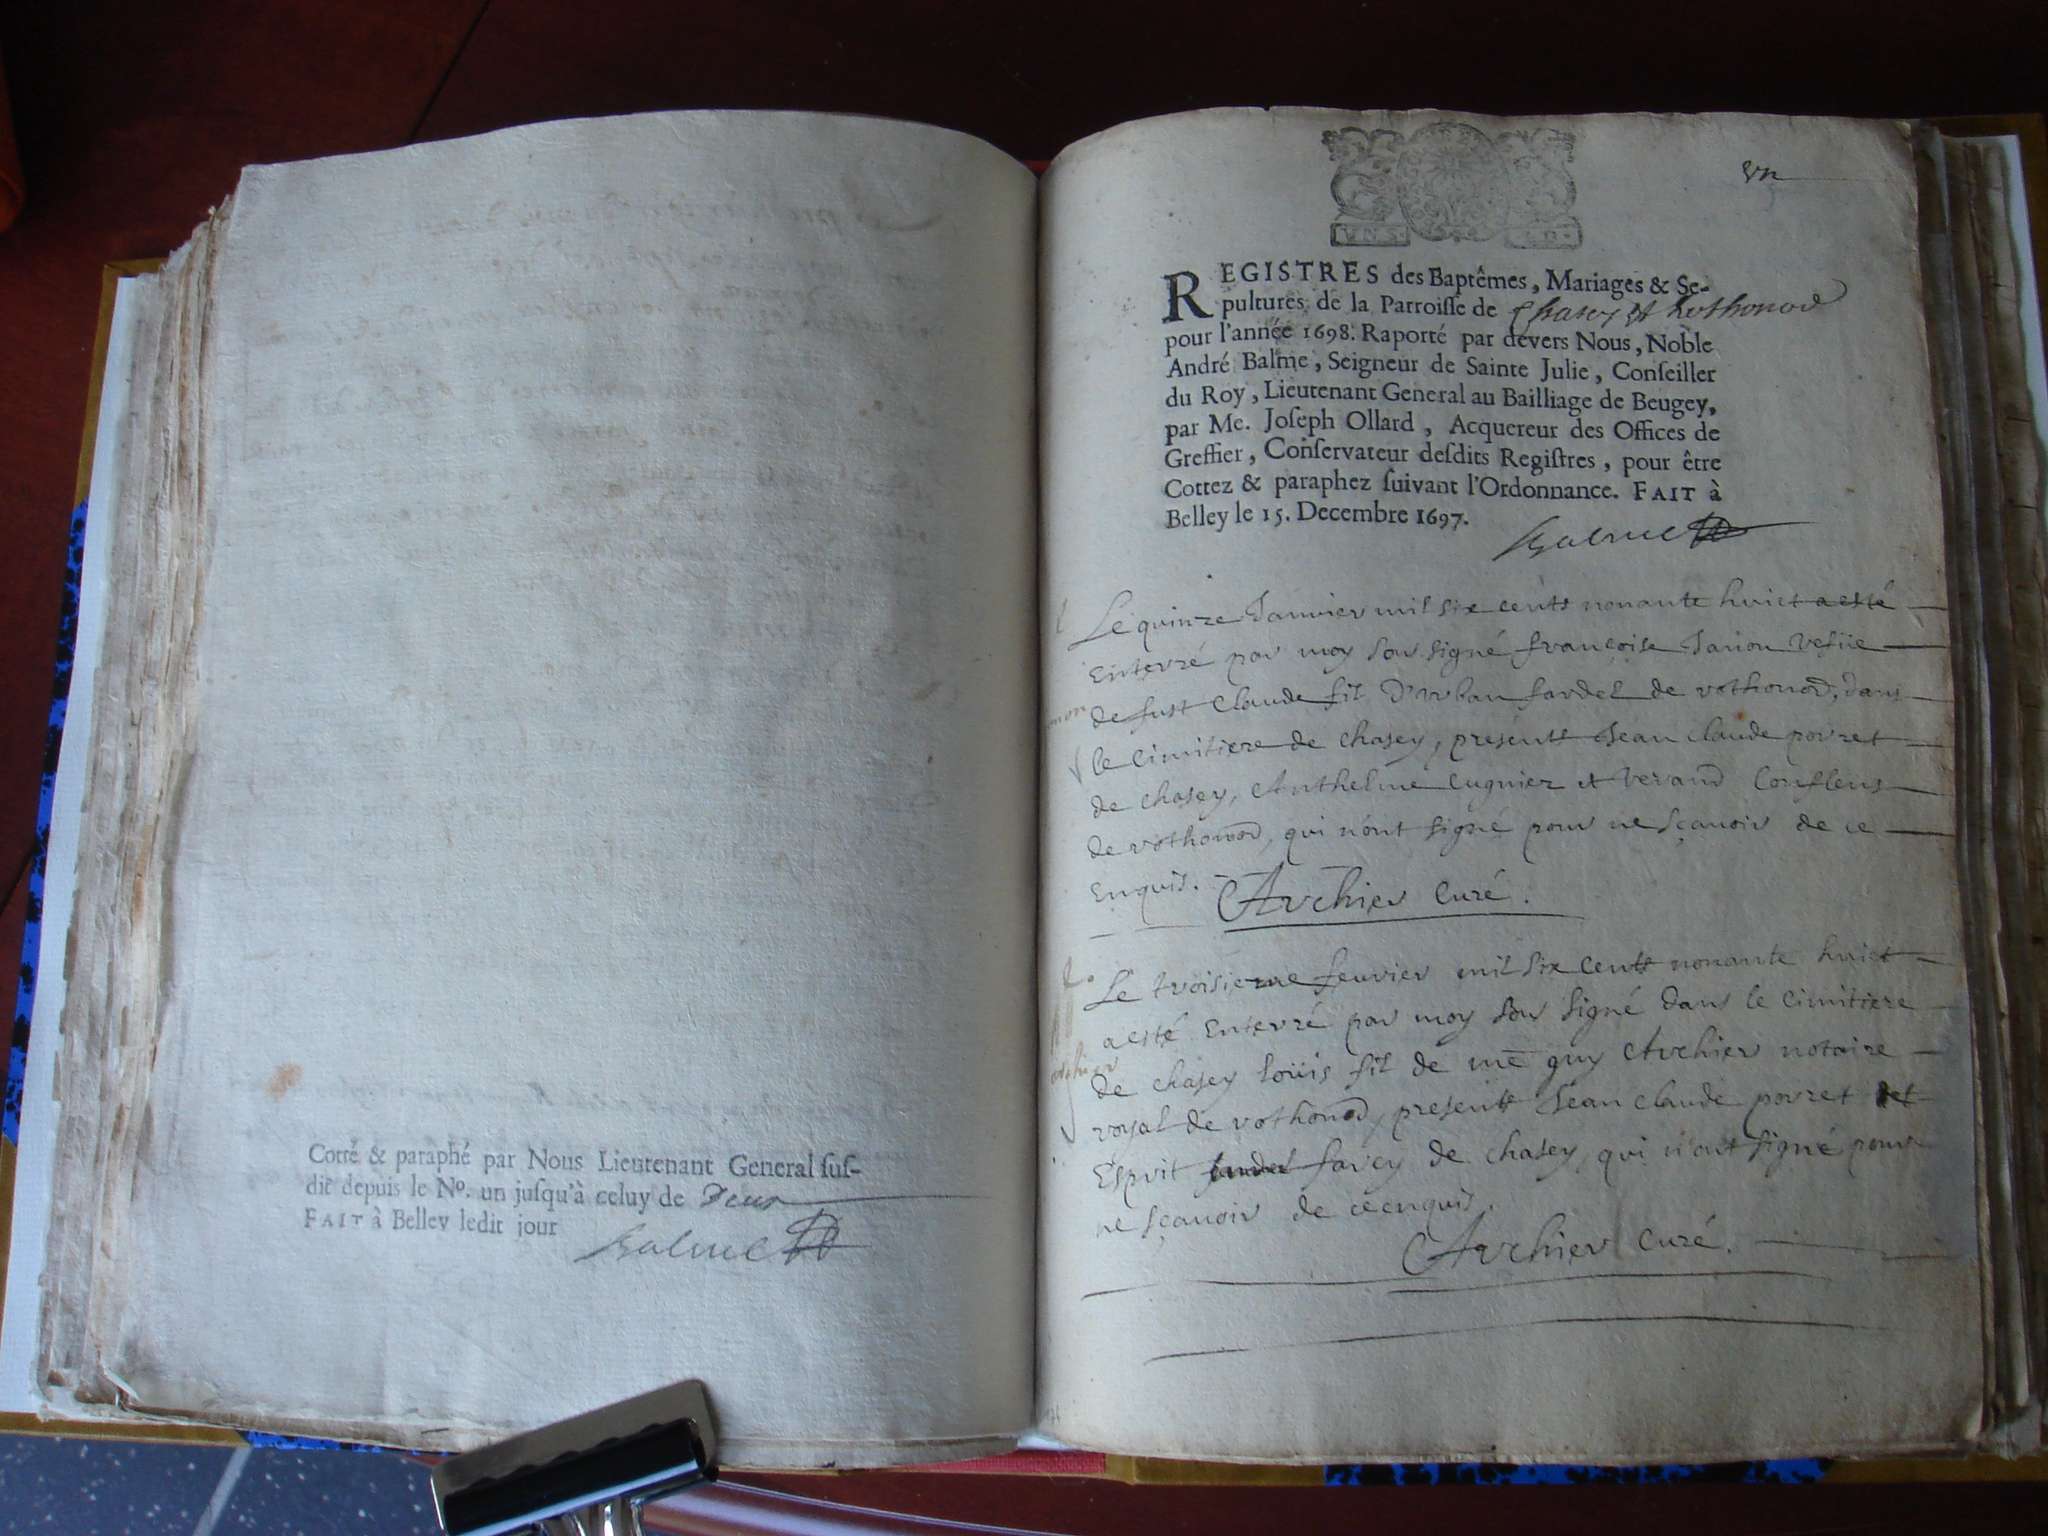 Cotté & paraphé par Nous Lieutenant General ſuſ-
dit depuis le No. un juſqu'à celuy de Deux
FAIT à Belley ledit jour
Balme
vn
REGISTRES des Baptêmes, Mariages & Se-
pultures de la Parroiſſe de Chasey et Vothonod
pour l'année 1698. Raporté par devers Nous, Noble
André Balme, Seigneur de Sainte Julie, Conſeiller
du Roy, Lieutenant General au Bailliage de Beugey,
par Me. Joſeph Ollard, Acquereur des Offices de
Greffier, Conſervateur deſdits Regiſtres, pour être
Cottez & paraphez ſuivant l'Ordonnance. FAIT à
Belley le 15. Decembre 1697.
Balme
Le quinze Janvier mil six cents nonante huict a esté
Enterré par moy sous signé françoise Janon vefue
de fust Claude fil D'vrban fardel de vothonod, dans
le Cimitiere de Chasey, présents Jean Claude povret
de Chasey, Anthelme Cugnier et Verand Conflens
de vothonod, qui n'ont signé pour ne sçavoir de ce
Enquis. Archier Curé.
Le troisieme feuvier mil six Cents nonante huict
a esté Enterré par moy sous signé dans le Cimitiere
de Chasey loüis fil de me guy Archier notaire
royal de vothonod, presents Jean Claude povret et
Esprit farcy de Chasey, qui n'ont signé pour
ne sçavoir de ce enquis.
Archier Curé.